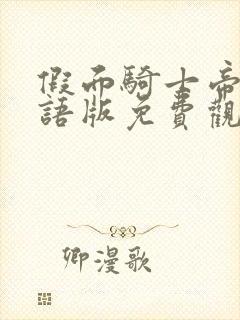 假面騎士帝
語版免費觀
卿漫歌